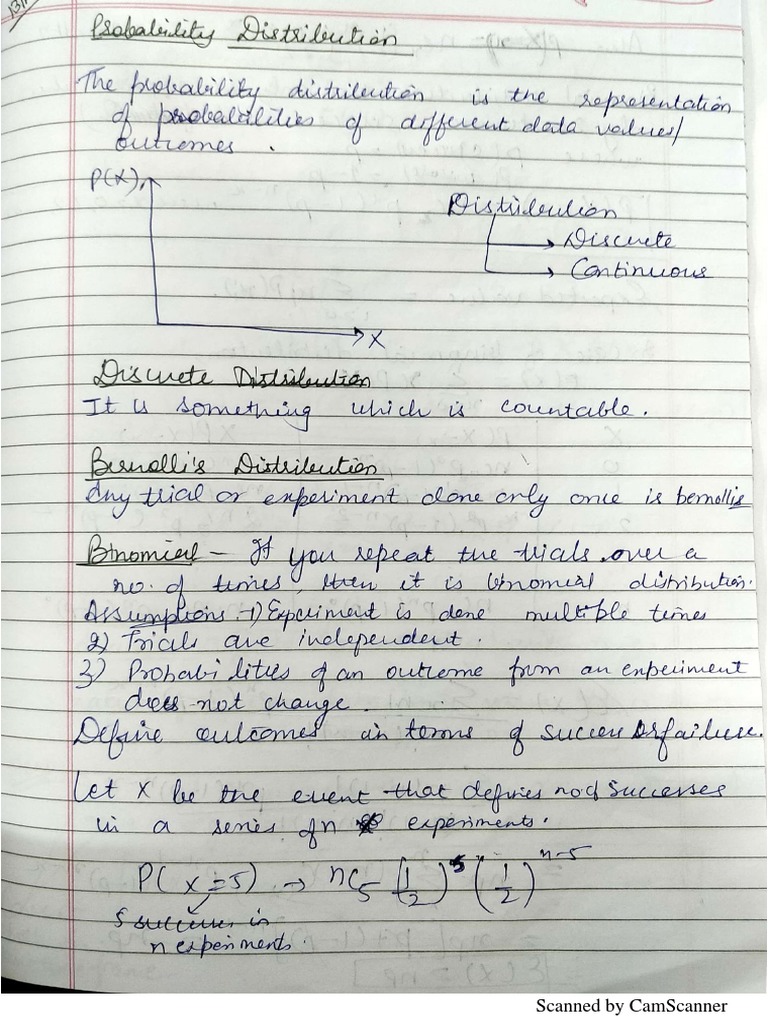 13/
Probability Distribution
The probability distribution is the representation
of probabilities of different data values/
outcomes.
P(X)
Distribution
Discrete
Continuous
X
Discrete Distribution
It is something which is countable.
Bernolli's Distribution
Any trial or experiment done only once is bernollis
Binomial - If you repeat the trials over a
no. of times, then it is binomial distribution.
Assumptions :- 1) Experiment is done multible times
2) Trials are independent.
3) Probabilities of an outcome from an experiment
does not change.
Define outcomes in terms of success or failure.
Let X be the event that defines no of successes
in a series of n experiments.
P(X=5) → nC5 (1/2)^5 (1/2)^n-5
5 success in
n experiments.
Scanned by CamScanner